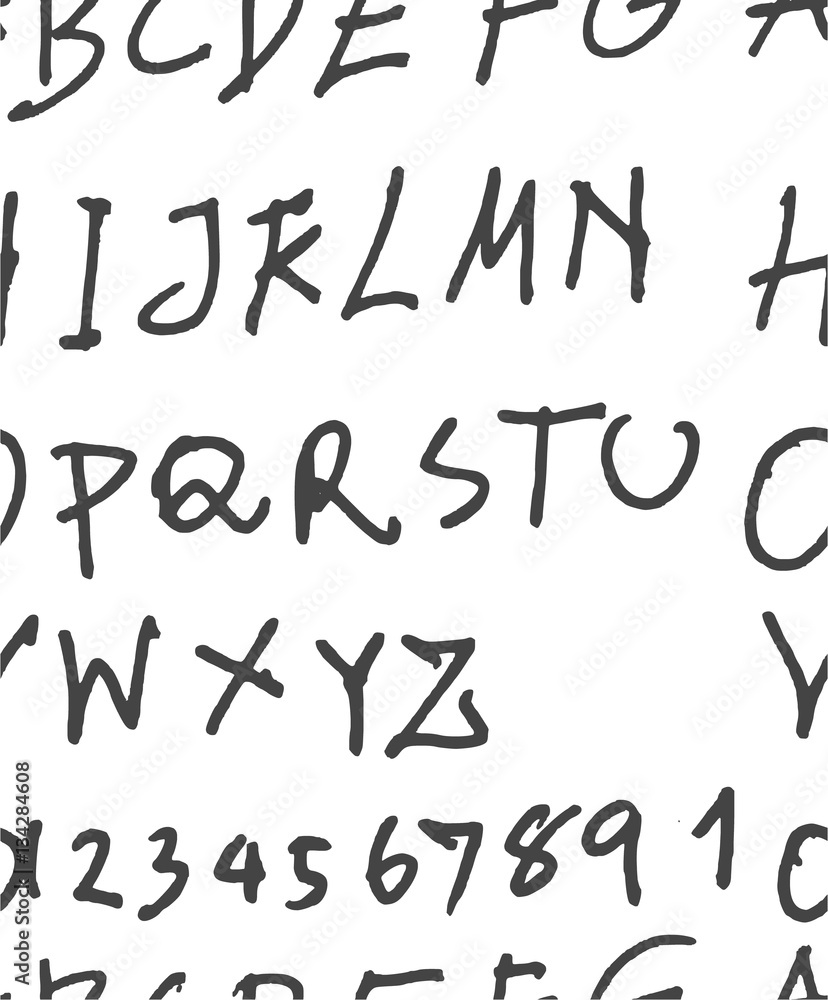 B C D E F G A
H I J K L M N H
O P Q R S T U O
V W X Y Z V
1 2 3 4 5 6 7 8 9 1 0
B C D E F G A
Adobe Stock | #134284608